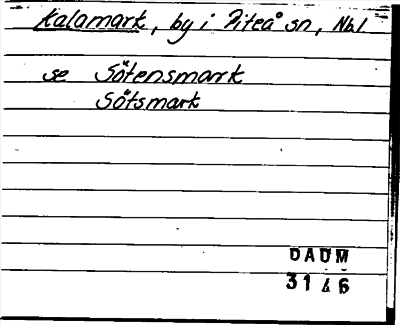 Kalamark, by i Piteå sn, Nbl
se Sötensmark
Sötsmark
DAUM
3146